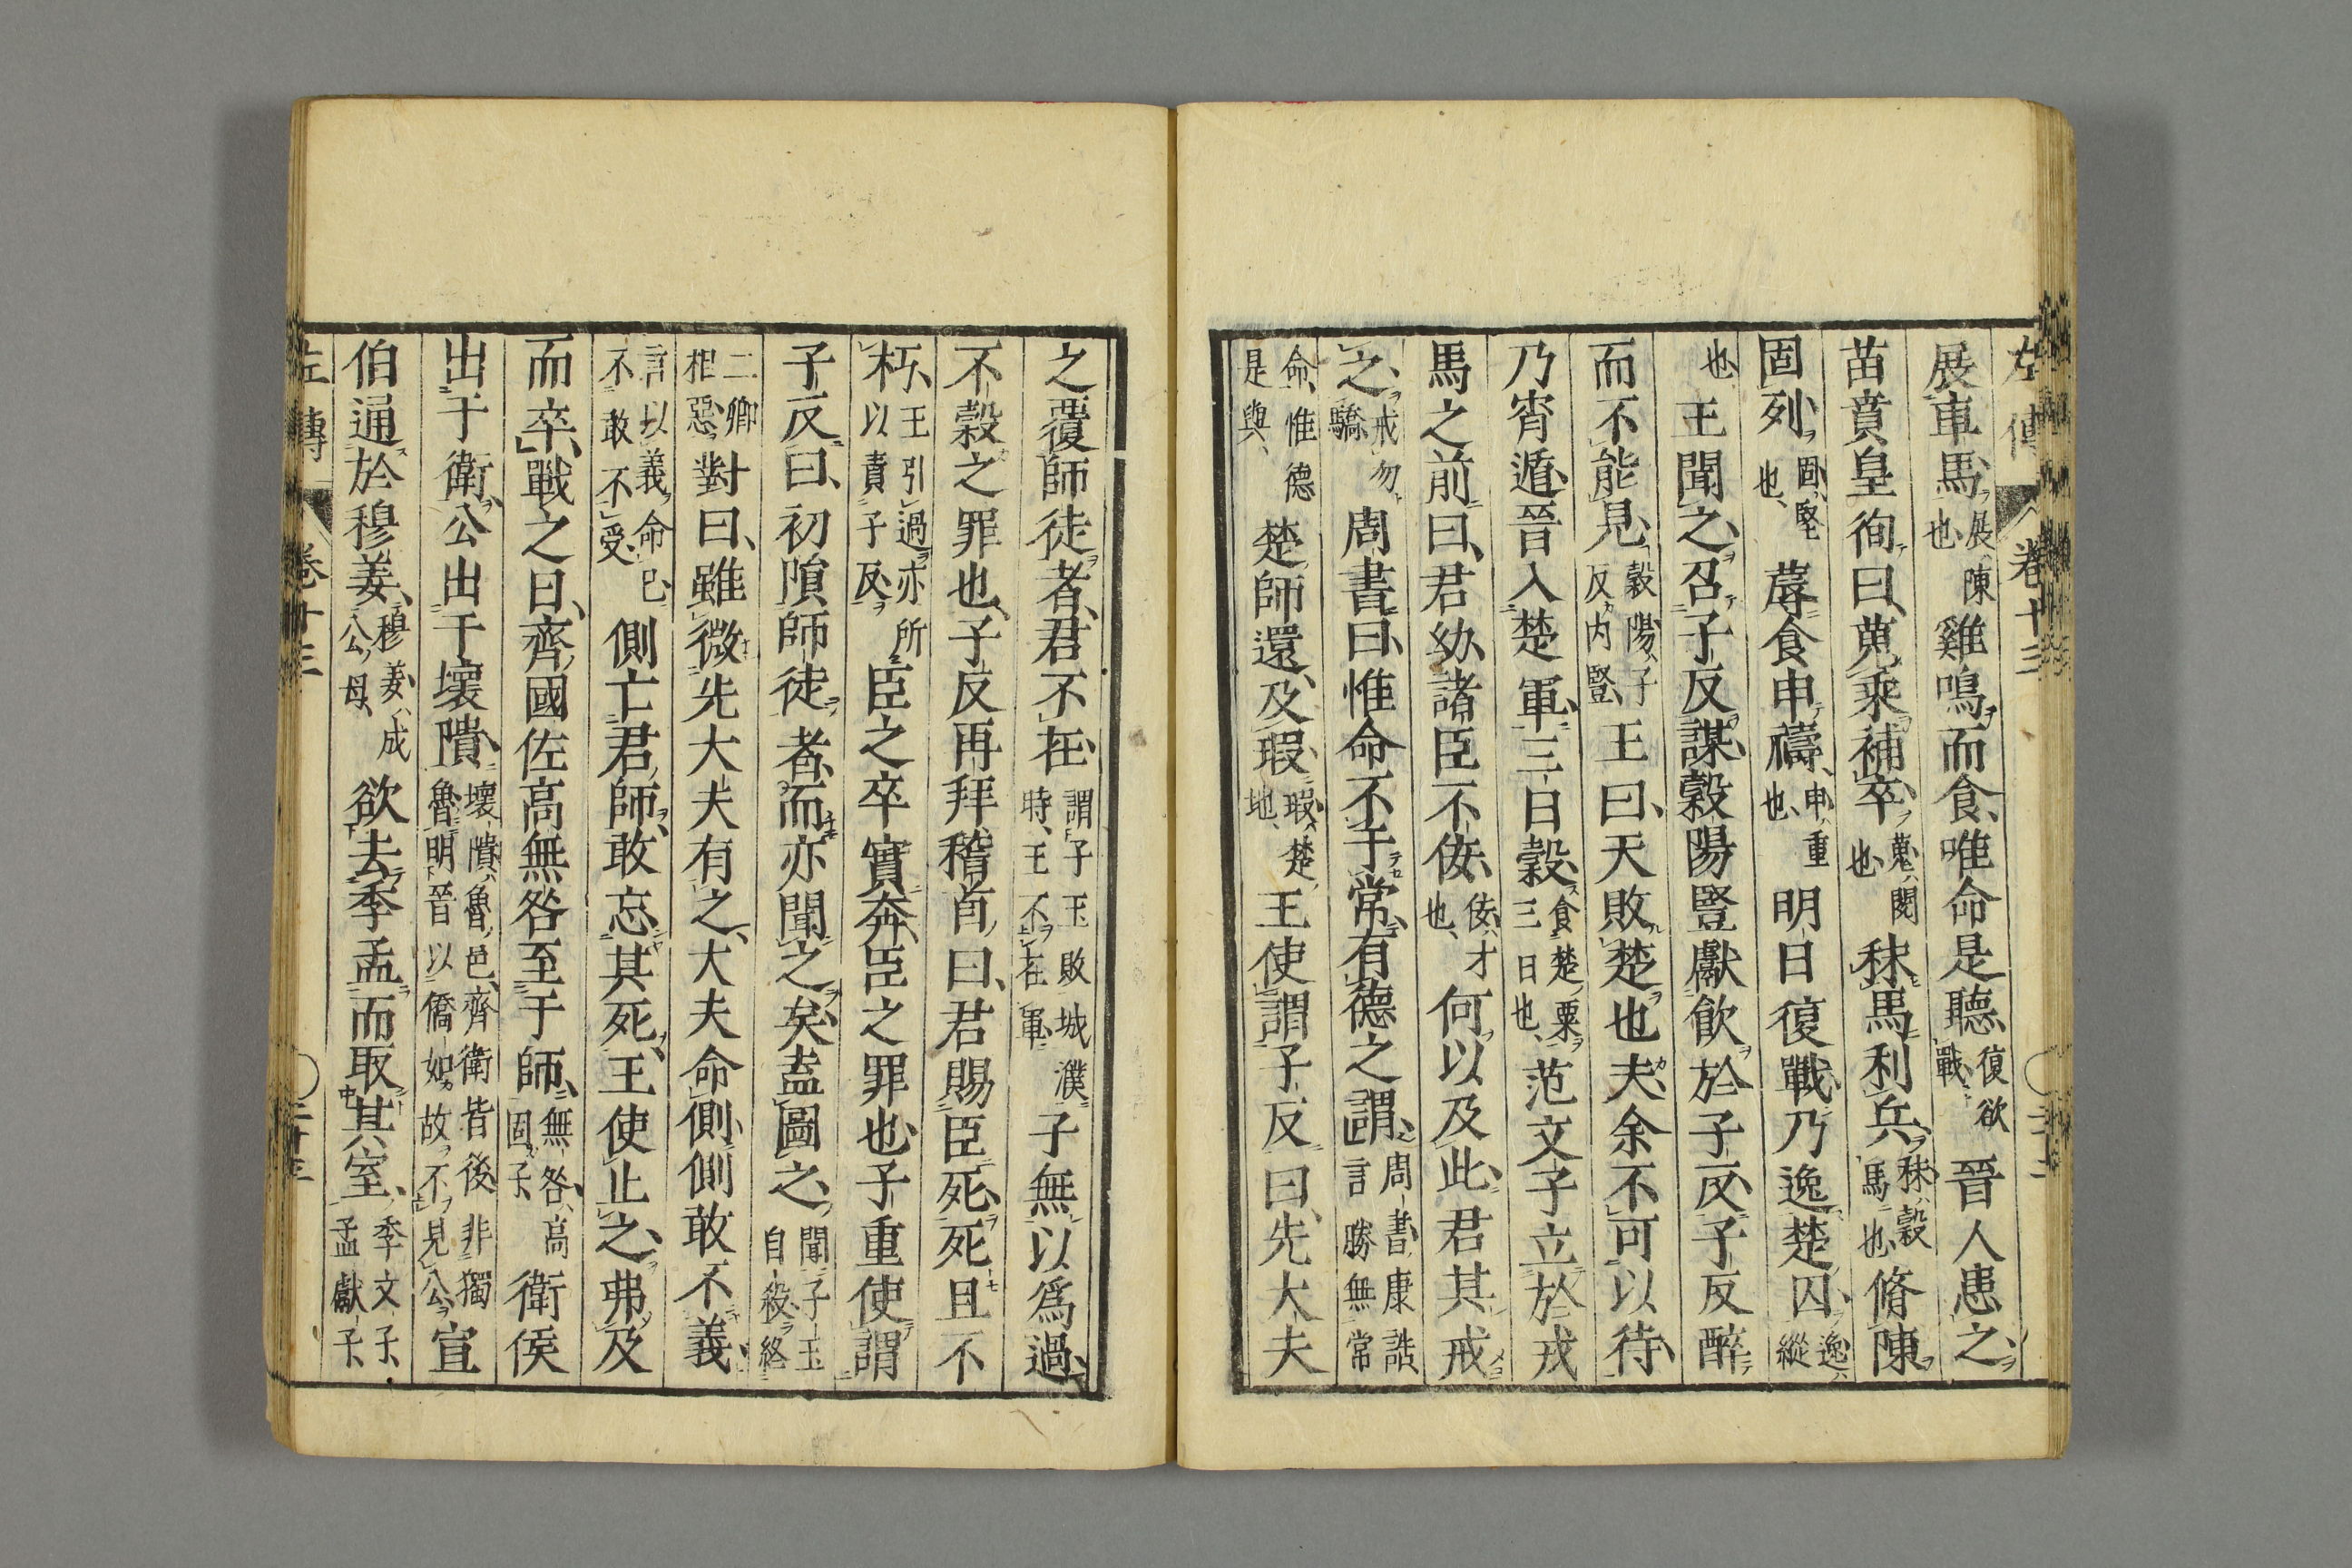 左傳 卷十三
展車馬展陳也雞鳴而食唯命是聽復欲戰晉人患之
苗賁皇徇曰蒐乘補卒蒐閱也秣馬利兵秣穀馬也脩陳
固列固堅也蓐食申禱申重也明日復戰乃逸楚囚逸縱
也王聞之召子反謀穀陽豎獻飮於子反子反醉
而不能見穀陽子反内豎王曰天敗楚也夫余不可以待
乃宵遁晉入楚軍三日穀食楚粟三日也范文子立於戎
馬之前曰君幼諸臣不佞佞才也何以及此君其戒
之戒勿驕周書曰惟命不于常有德之謂周書康誥言勝無常
命惟德是與楚師還及瑕瑕楚地王使謂子反曰先大夫
之覆師徒者君不在謂子玉敗城濮時王不在軍子無以爲過
不穀之罪也子反再拜稽首曰君賜臣死死且不
朽王引過亦所以責子反臣之卒實奔臣之罪也子重使謂
子反曰初隕師徒者而亦聞之矣盍圖之聞子玉自殺終
二卿相惡對曰雖微先大夫有之大夫命側側敢不義
言以義命已不敢不受側亡君師敢忘其死王使止之弗及
而卒戰之日齊國佐高無咎至于師無咎高固子衞侯
出于衞公出于壞隤壞隤魯邑齊衞皆後非獨魯明晉以僑如故不見公宣
伯通於穆姜穆姜成公母欲去季孟而取其室季文子孟獻子
左傳 卷十三 二十三